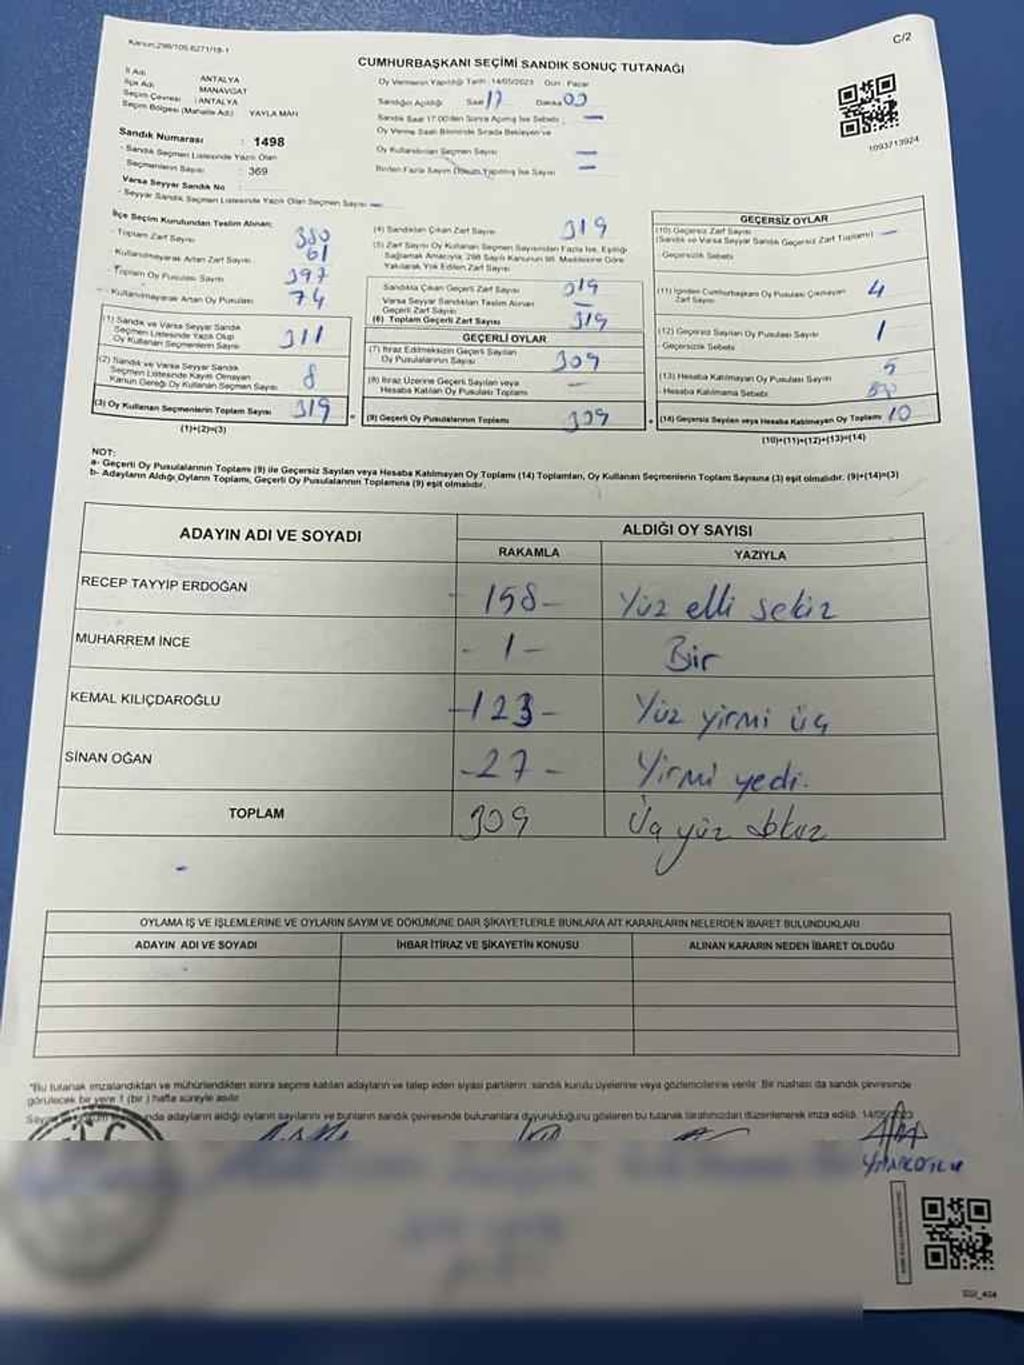 Kanun:298/105.6271/18-1
C/2
CUMHURBAŞKANI SEÇİMİ SANDIK SONUÇ TUTANAĞI
İl Adı ANTALYA
İlçe Adı MANAVGAT
Seçim Çevresi : ANTALYA
Seçim Bölgesi (Mahalle Adı) YAYLA MAH
Sandık Numarası : 1498
- Sandık Seçmen Listesinde Yazılı Olan
Seçmenlerin Sayısı : 369
Varsa Seyyar Sandık No
- Seyyar Sandık Seçmen Listesinde Yazılı Olan Seçmen Sayısı —
Oy Vermenin Yapıldığı Tarih : 14/05/2023 Gün : Pazar
Sandığın Açıldığı Saat 17 Dakika 00
Sandık Saat 17.00'den Sonra Açılmış İse Sebebi : —
Oy Verme Saati Bitiminde Sırada Bekleyen ve
Oy Kullandırılan Seçmen Sayısı —
Birden Fazla Sayım Döküm Yapılmış İse Sayısı —
1093713924
İlçe Seçim Kurulundan Teslim Alınan:
- Toplam Zarf Sayısı 380
- Kullanılmayarak Artan Zarf Sayısı 61
- Toplam Oy Pusulası Sayısı 397
- Kullanılmayarak Artan Oy Pusulası 74
(1) Sandık ve Varsa Seyyar Sandık
Seçmen Listesinde Yazılı Olup
Oy Kullanan Seçmenlerin Sayısı 311
(2) Sandık ve Varsa Seyyar Sandık
Seçmen Listesinde Kayıtlı Olmayan
Kanun Gereği Oy Kullanan Seçmen Sayısı 8
(3) Oy Kullanan Seçmenlerin Toplam Sayısı 319
(1)+(2)=(3)
(4) Sandıktan Çıkan Zarf Sayısı 319
(5) Zarf Sayısı Oy Kullanan Seçmen Sayısından Fazla İse, Eşitliği
Sağlamak Amacıyla, 298 Sayılı Kanunun 98. Maddesine Göre
Yakılarak Yok Edilen Zarf Sayısı
Sandıkta Çıkan Geçerli Zarf Sayısı 319
Varsa Seyyar Sandıktan Teslim Alınan
Geçerli Zarf Sayısı —
(6) Toplam Geçerli Zarf Sayısı 319
GEÇERLİ OYLAR
(7) İtiraz Edilmeksizin Geçerli Sayılan
Oy Pusulalarının Sayısı 309
(8) İtiraz Üzerine Geçerli Sayılan veya
Hesaba Katılan Oy Pusulaları Toplamı —
(9) Geçerli Oy Pusulalarının Toplamı 309
GEÇERSİZ OYLAR
(10) Geçersiz Zarf Sayısı
(Sandık ve Varsa Seyyar Sandık Geçersiz Zarf Toplamı) —
Geçersizlik Sebebi
(11) İçinden Cumhurbaşkanı Oy Pusulası Çıkmayan
Zarf Sayısı 4
(12) Geçersiz Sayılan Oy Pusulası Sayısı 1
Geçersizlik Sebebi
(13) Hesaba Katılmayan Oy Pusulası Sayısı 5
Hesaba Katılmama Sebebi
(14) Geçersiz Sayılan veya Hesaba Katılmayan Oy Toplamı 10
(10)+(11)+(12)+(13)=(14)
NOT:
a- Geçerli Oy Pusulalarının Toplamı (9) ile Geçersiz Sayılan veya Hesaba Katılmayan Oy Toplamı (14) Toplamları, Oy Kullanan Seçmenlerin Toplam Sayısına (3) eşit olmalıdır. (9)+(14)=(3)
b- Adayların Aldığı Oyların Toplamı, Geçerli Oy Pusulalarının Toplamına (9) eşit olmalıdır.
ADAYIN ADI VE SOYADI ALDIĞI OY SAYISI
RAKAMLA YAZIYLA
RECEP TAYYİP ERDOĞAN - 158 - Yüz elli sekiz
MUHARREM İNCE - 1 - Bir
KEMAL KILIÇDAROĞLU - 123 - Yüz yirmi üç
SİNAN OĞAN - 27 - Yirmi yedi.
TOPLAM 309 Üç yüz dokuz
OYLAMA İŞ VE İŞLEMLERİNE VE OYLARIN SAYIM VE DÖKÜMÜNE DAİR ŞİKAYETLERLE BUNLARA AİT KARARLARIN NELERDEN İBARET BULUNDUKLARI
ADAYIN ADI VE SOYADI İHBAR İTİRAZ VE ŞİKAYETİN KONUSU ALINAN KARARIN NEDEN İBARET OLDUĞU
"Bu tutanak imzalandıktan ve mühürlendikten sonra seçime katılan adayların ve talep eden siyasi partilerin sandık kurulu üyelerine veya gözlemcilerine verilir. Bir nüshası da sandık çevresinde
görülecek bir yere 1 (bir) hafta süreyle asılır
adayların aldığı oyların sayılarını ve bunların sandık çevresinde bulunanlara duyurulduğunu gösteren bu tutanak tarafımızdan düzenlenerek imza edildi. 14/05/2023